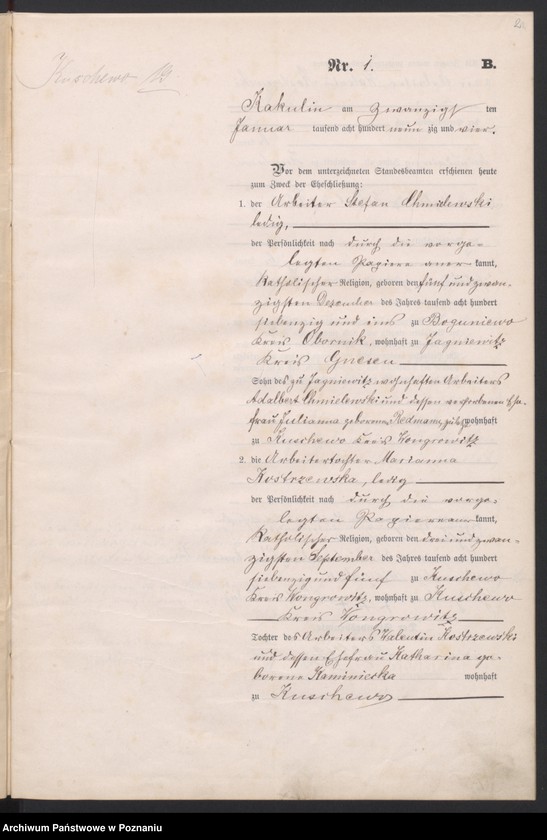 Kuschewo 12
Nr. 1. B.
Kakulin am zwanzigsten
Januar tausend acht hundert neunzig und vier.
Vor dem unterzeichneten Standesbeamten erschienen heute
zum Zweck der Eheschließung:
1. der Arbeiter Stefan Chmielewski
ledig,
der Persönlichkeit nach durch die vorge-
legten Papiere anerkannt,
katholischer Religion, geboren den fünf und zwan-
zigsten Dezember des Jahres tausend acht hundert
siebenzig und eins zu Boguniewo
Kreis Obornik, wohnhaft zu Jagniewitz
Kreis Gnesen
Sohn des zu Jagniewitz wohnhaften Arbeiters
Adalbert Chmielewski und dessen verstorbenen Ehe-
frau Julianna geborenen Redmann, zuletzt wohnhaft
zu Kuschewo Kreis Wongrowitz
2. die Arbeitertochter Marianna
Kostrzewska, ledig
der Persönlichkeit nach durch die vorge-
legten Papiere anerkannt,
katholischer Religion, geboren den drei und zwan-
zigsten September des Jahres tausend acht hundert
siebenzig und fünf zu Kuschewo
Kreis Wongrowitz, wohnhaft zu Kuschewo
Kreis Wongrowitz
Tochter des Arbeiters Valentin Kostrzewski
und dessen Ehefrau Katharina ge-
borene Kaminiecka wohnhaft
zu Kuschewo
Archiwum Państwowe w Poznaniu